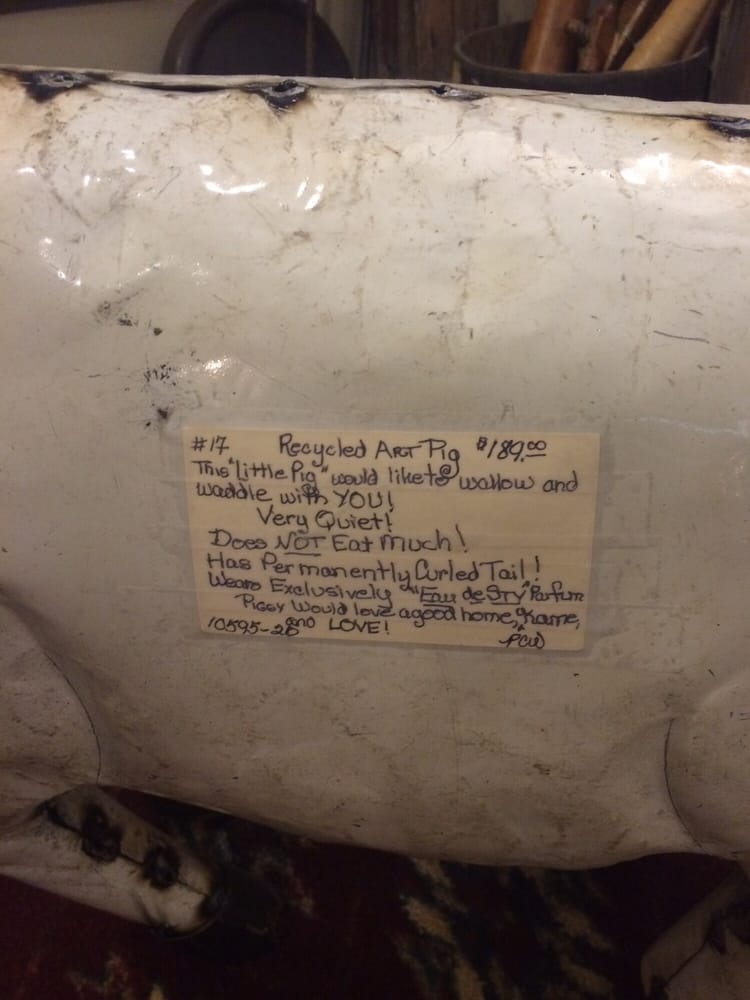 #17 Recycled ART Pig $189.00
This "Little Pig" would like to wallow and
waddle with YOU!
Very Quiet!
Does NOT Eat Much!
Has Permanently Curled Tail!
Wears Exclusively "Eau de Sty" Parfum
Piggy Would love a good home, name,
10595-26 and LOVE!
PCW